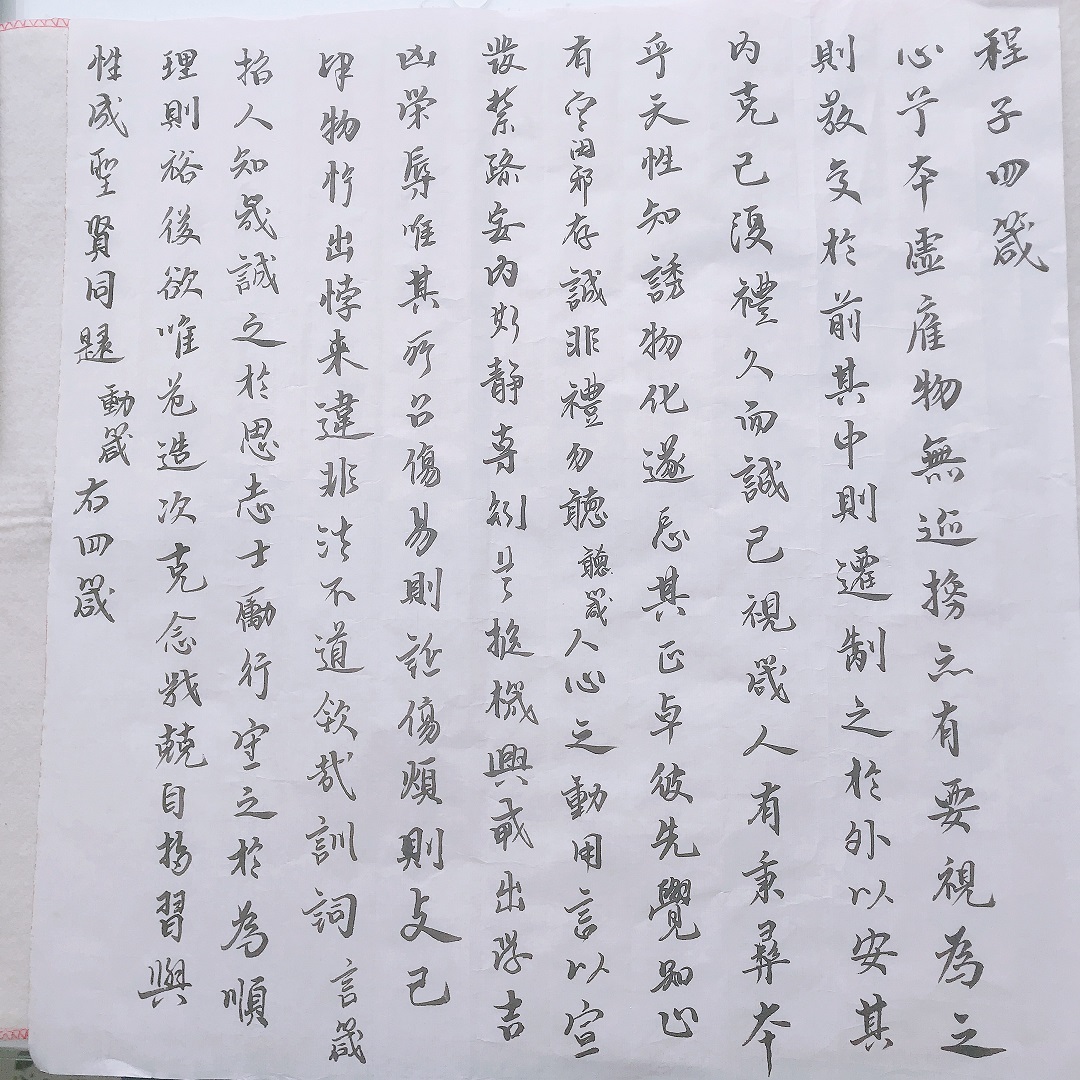 程子四箴
心兮本虛應物無迹操之有要視為之
則蔽交於前其中則遷制之於外以安其
內克己復禮久而誠已視箴人有秉彝本
乎天性知誘物化遂忘其正卓彼先覺知止
有定閑邪存誠非禮勿聽聽箴人心之動用言以宣
發禁躁妄內斯靜專矧是樞機興戎出好吉
凶榮辱唯其所召傷易則誕傷煩則支己
肆物忤出悖来違非法不道欽哉訓詞言箴
哲人知幾誠之於思志士勵行守之於為順
理則裕從欲唯危造次克念戰兢自持習與
性成聖賢同歸動箴右四箴